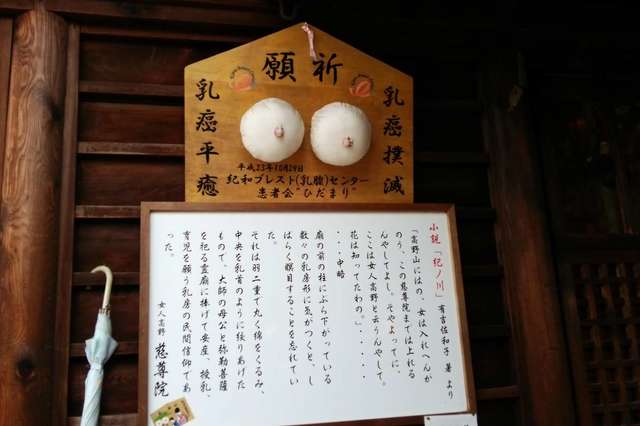 祈願
乳癌撲滅
乳癌平癒
平成23年10月29日
紀和ブレスト(乳腺)センター
患者会"ひだまり"
小説「紀ノ川」 有吉佐和子 著 より
「高野山にはの、女は入れへんが
のう、この慈尊院までは上れる
んやしてよし。そやよってに、
ここは女人高野と云うんやして。
花は知ってたわの。」・・・・
・・・中略
廟の前の柱にぶら下がっている
数々の乳房形に気がつくと、し
ばらく瞑目することを忘れてい
た。
それは羽二重で丸く綿をくるみ、
中央を乳首のように絞りあげた
もので、大師の母公と弥勒菩薩
を祀る霊廟に捧げて安産、授乳、
育児を願う乳房の民間信仰であ
った。
女人高野 慈尊院